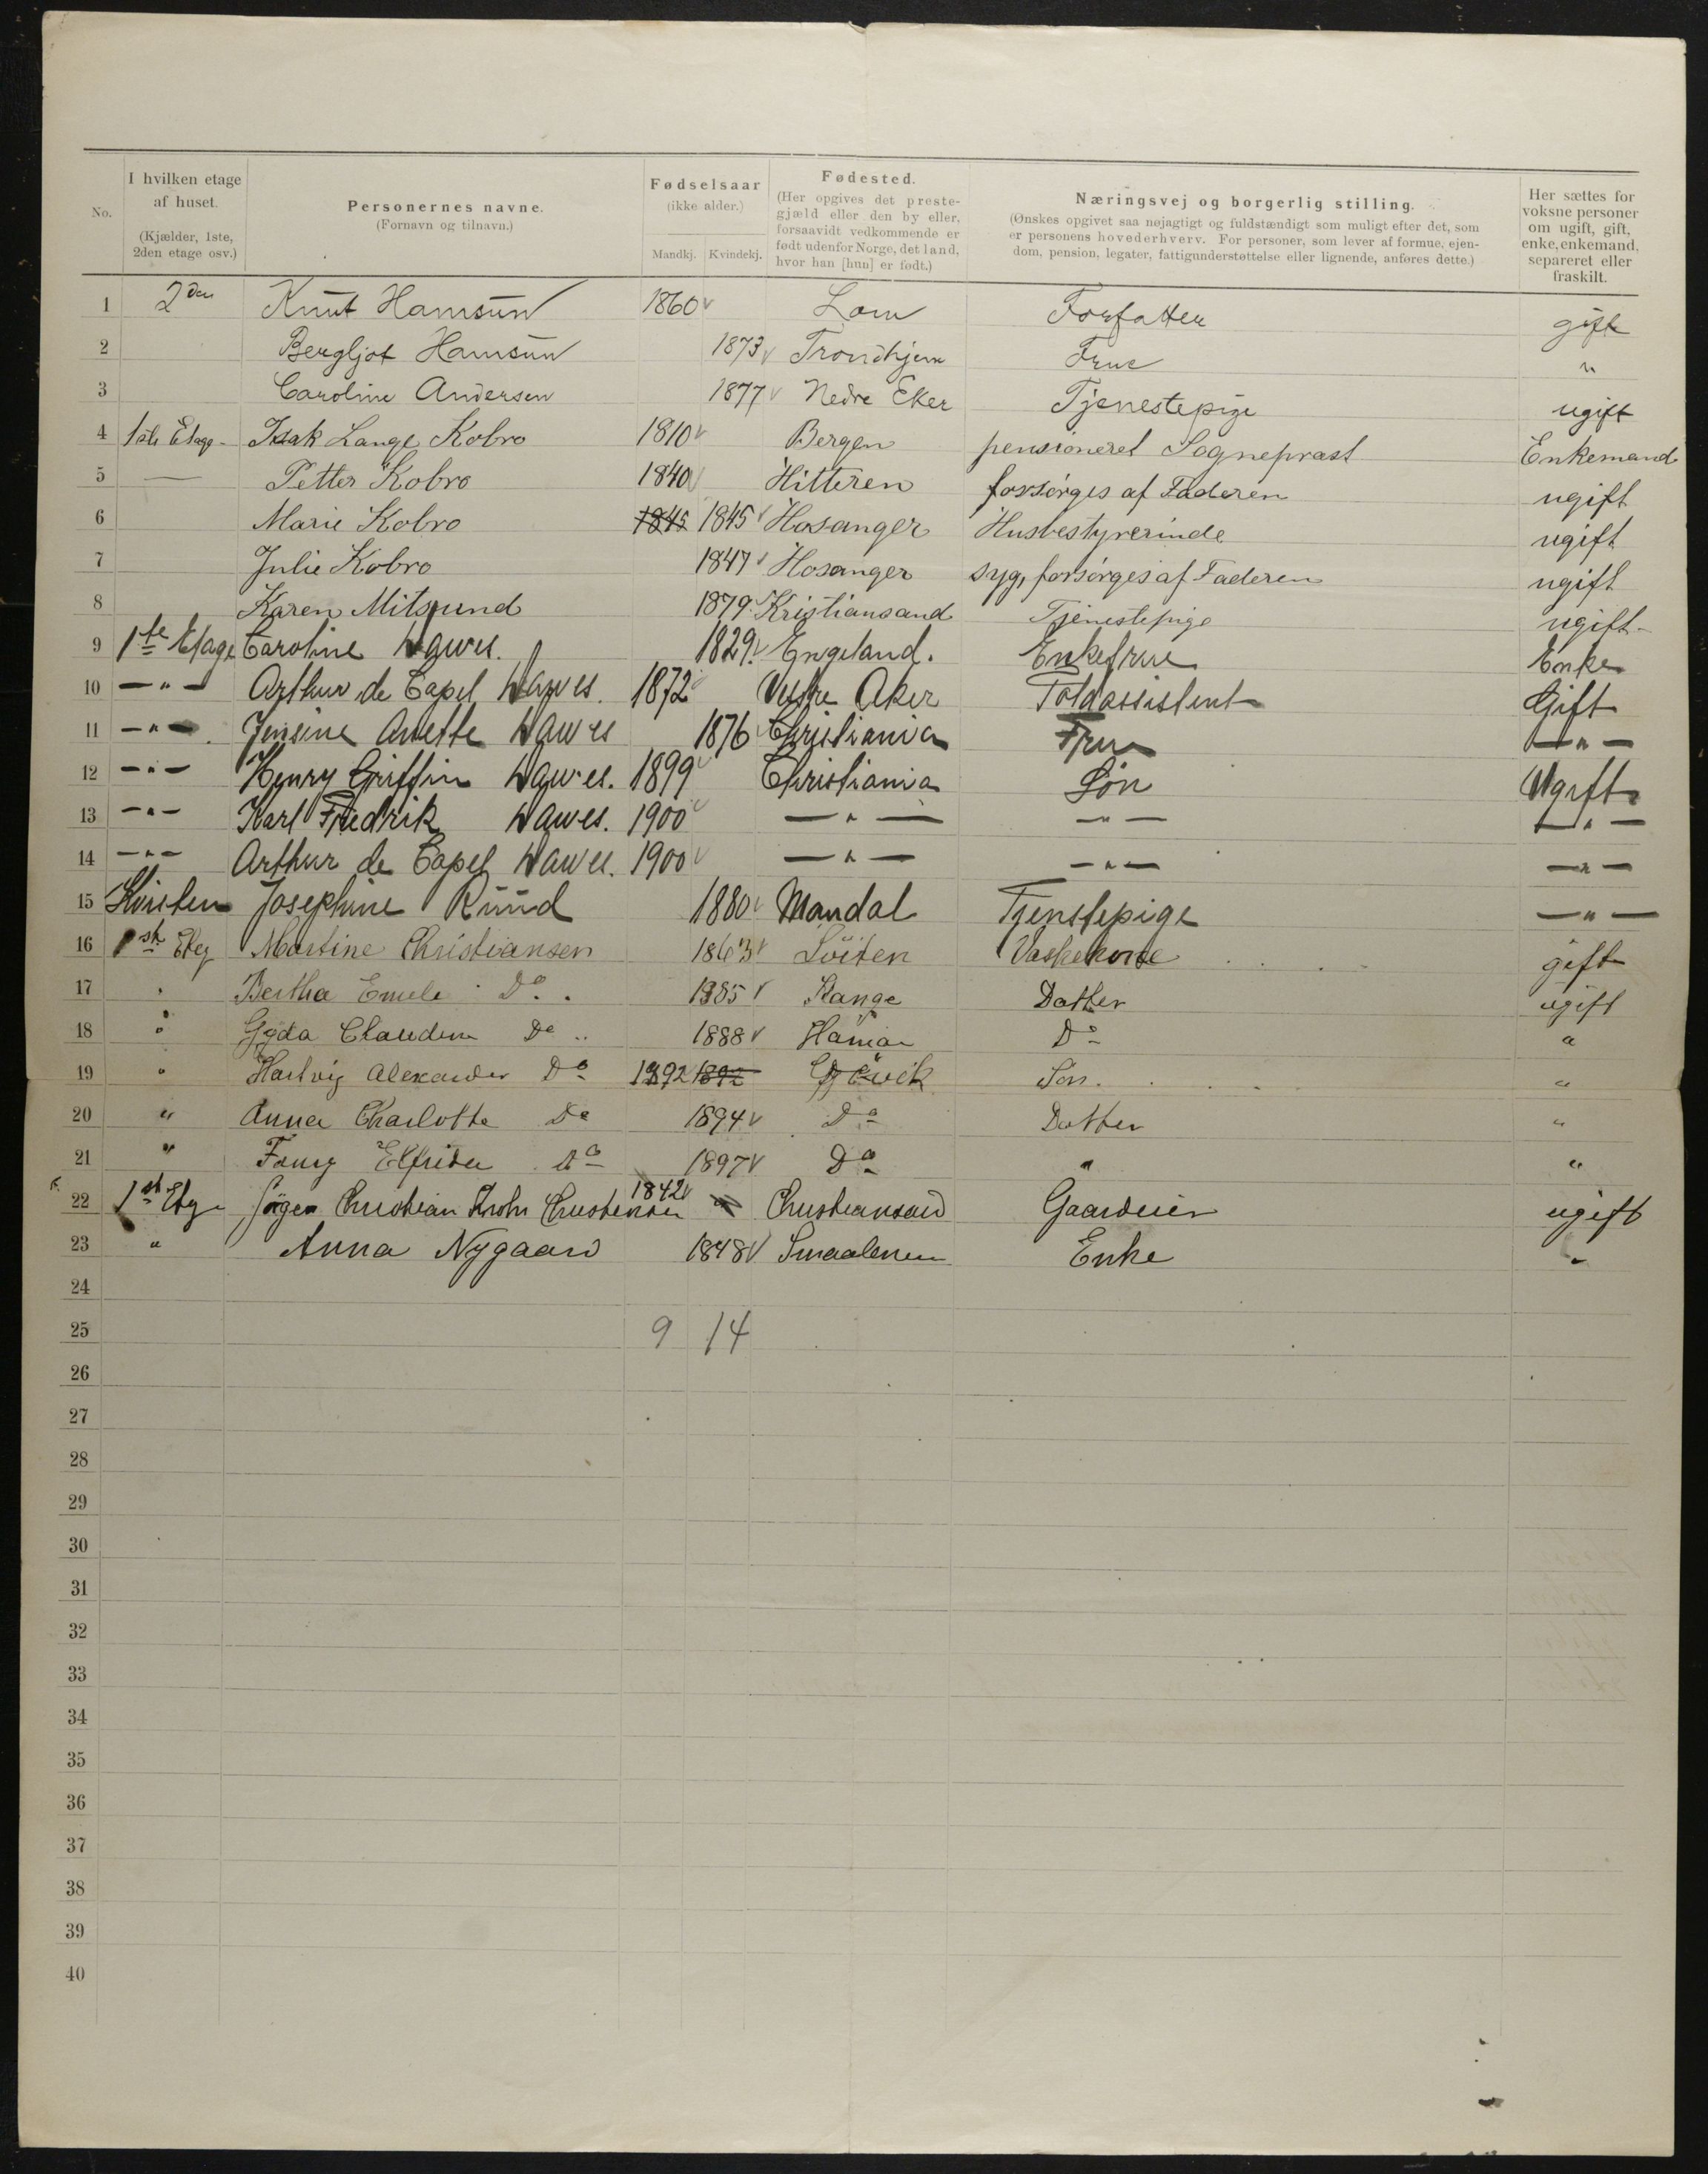 No.
I hvilken etage
af huset.
(Kjælder, 1ste,
2den etage osv.)
Personernes navne.
(Fornavn og tilnavn.)
Fødselsaar
(ikke alder.)
Mandkj. Kvindekj.
Fødested.
(Her opgives det preste-
gjæld eller den by eller,
forsaavidt vedkommende er
født udenfor Norge, det land,
hvor han [hun] er født.)
Næringsvej og borgerlig stilling.
(Ønskes opgivet saa nøjagtigt og fuldstændigt som muligt efter det, som
er personens hovederhverv. For personer, som lever af formue, ejen-
dom, pension, legater, fattigunderstøttelse eller lignende, anføres dette.)
Her sættes for
voksne personer
om ugift, gift,
enke, enkemand,
separeret eller
fraskilt.
1 2den Knut Hamsun 1860 Lom Forfatter gift
2 Bergljot Hamsun 1873 Trondhjem Frue "
3 Caroline Andersen 1877 Nedre Eker Tjenestepige ugift
4 1ste Etage Isak Lange Kobro 1810 Bergen pensioneret Sogneprast Enkemand
5 — Petter Kobro 1840 Hitteren forsörges af Faderen ugift
6 Marie Kobro 1845 1845 Hosanger Husbestyrerinde ugift
7 Julie Kobro 1847 Hosanger syg, forsörges af Faderen ugift
8 Karen Mitsund 1879 Kristiansand Tjenestepige ugift
9 1te Etage Caroline Hawes. 1829 Engeland. Enkefrue Enke
10 — " — Arthur de Capel Hawes. 1872 Vestre Aker Toldassistent Gift
11 — " — Jensine Anette Hawes 1876 Christiania Frue — " —
12 — " — Henry Griffin Hawes. 1899 Christiania Sön Ugift
13 — " — Karl Fredrik Hawes. 1900 — " — — " — — " —
14 — " — Arthur de Capel Hawes. 1900 — " — — " — — " —
15 Josephine Ruud 1880 Mandal Tjenstepige — " —
16 1ste Etg Martine Christiansen 1863 Löiten Vaskekone gift
17 " Bertha Emele Do. 1885 Stange Datter ugift
18 " Gyda Claudine Do 1888 Hamar Do "
19 " Hartvig Alexander Do 1892 1892 Gjövik Sön "
20 " Anna Charlotte Do 1894 Do Datter "
21 " Fanny Elfrida Do 1897 Do " "
22 1st Etg Jörgen Christian Krohn Christensen 1842 Christiansand Gaardeier ugift
23 " Anna Nygaard 1848 Smaalenene Enke "
24
25 9 14
26
27
28
29
30
31
32
33
34
35
36
37
38
39
40